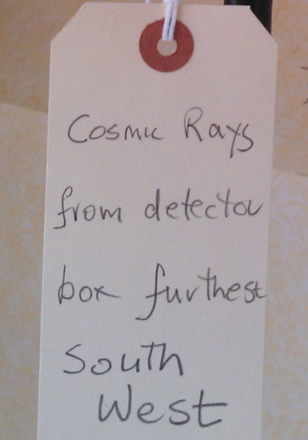 Cosmic Rays
from detector
box furthest
South
West